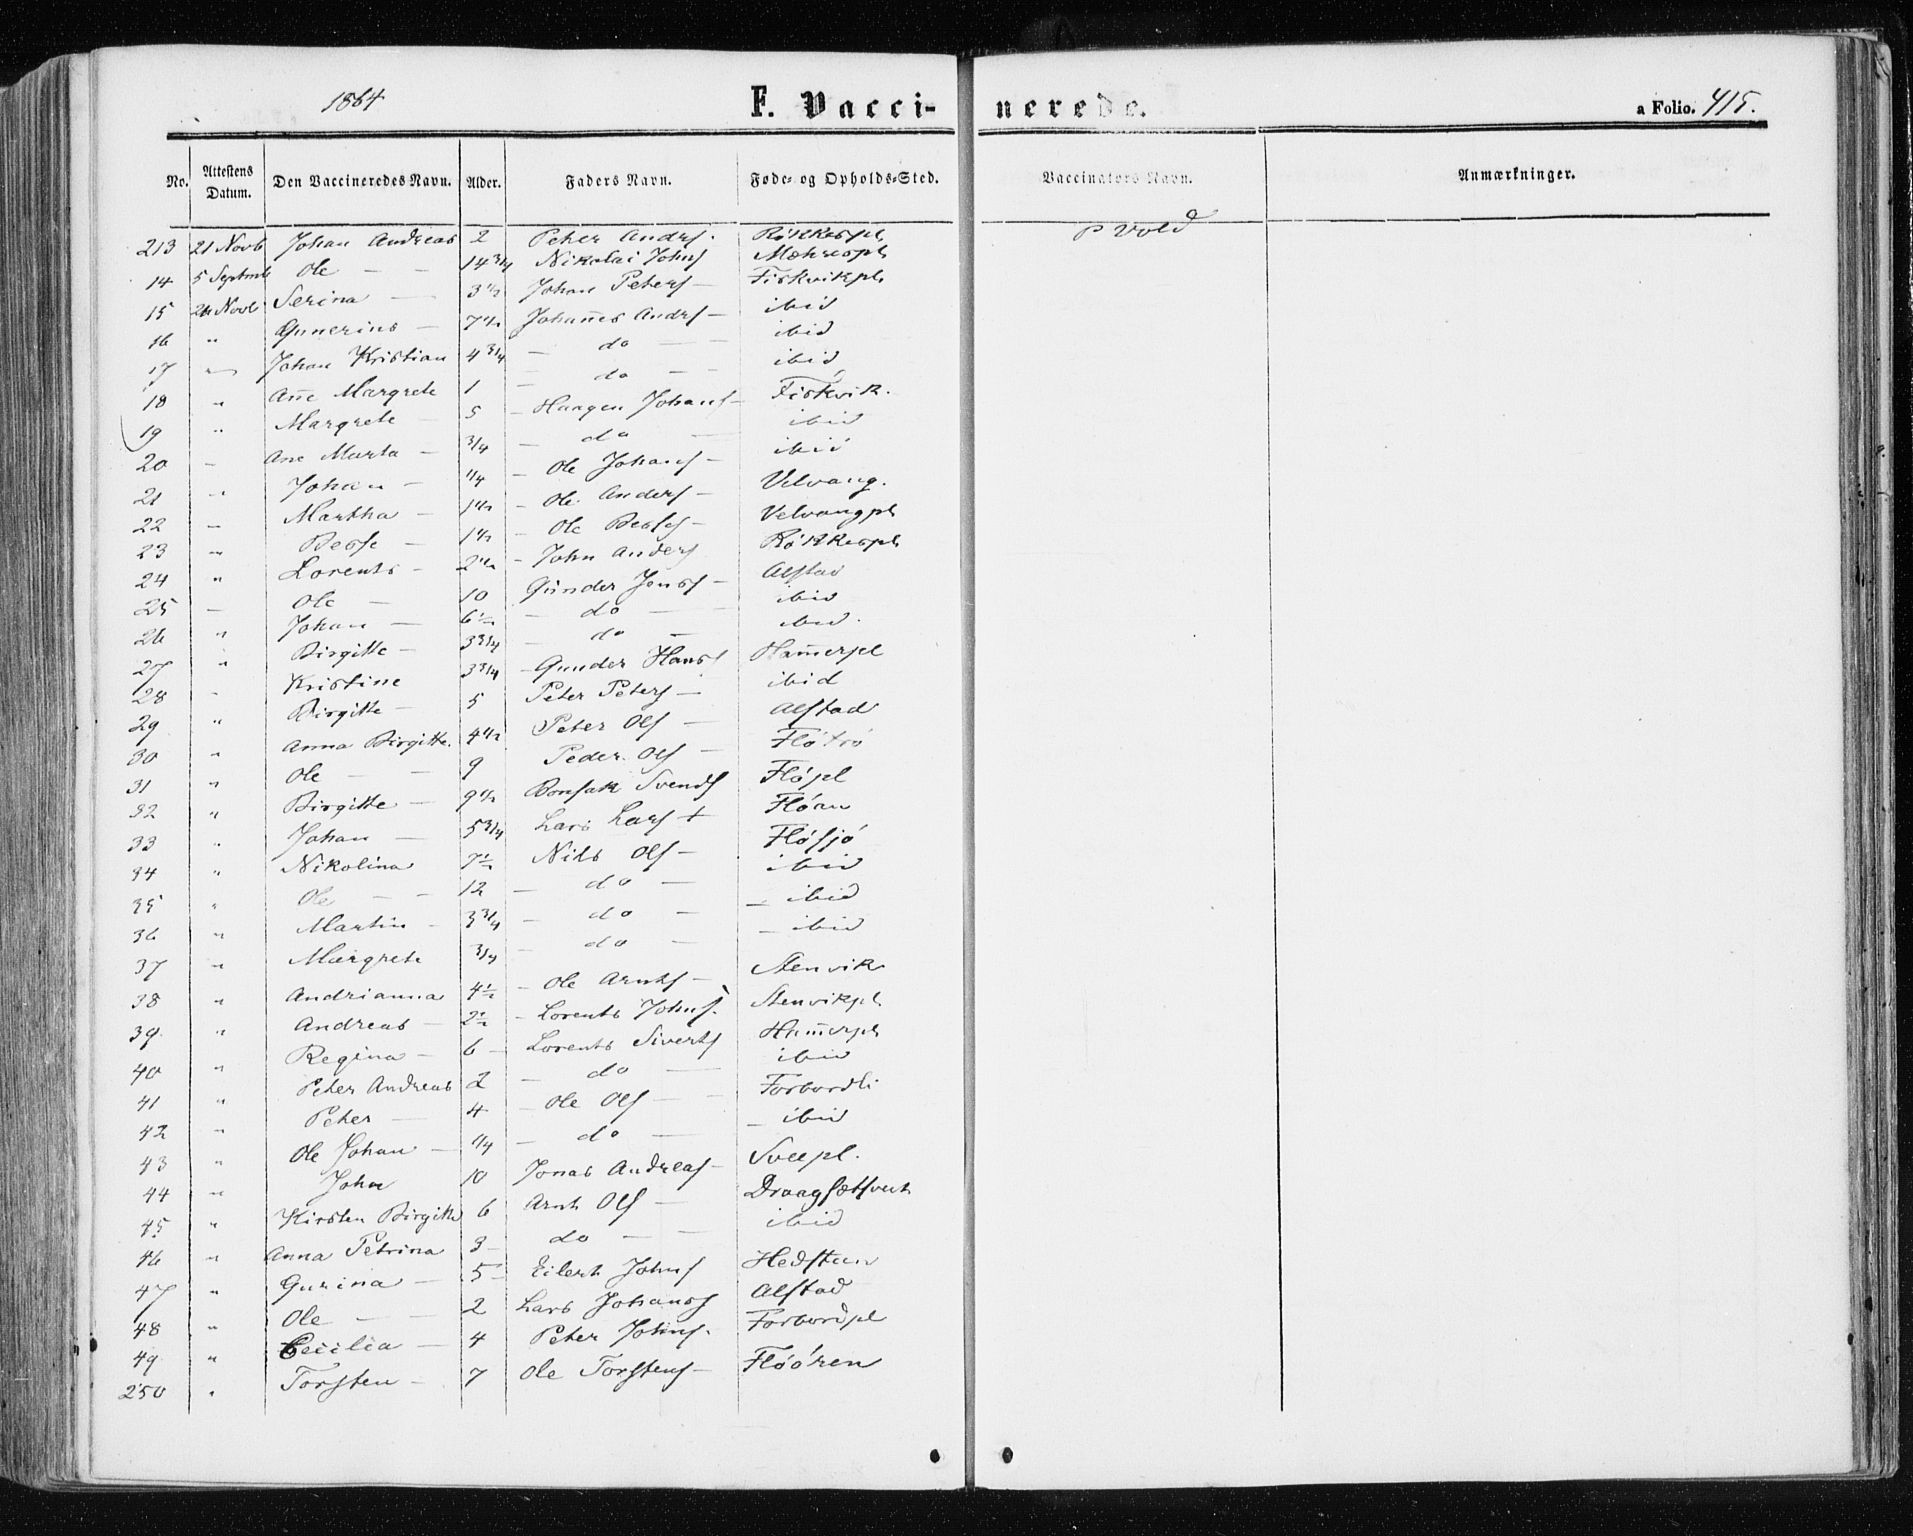 1864 F. Vaccinerede. a Folio. 415.
No. Attestens Datum. Den Vaccineredes Navn. Alder. Faders Navn. Føde- og Opholds-Sted. Vaccinators Navn. Anmærkninger.
213 21 Novb Johan Andreas 2 Peter Andrs. Røkkespl P Vold
14 5 Septmb Ole — — 14 3/4 Nikolai Johns Mæhrespl
15 21 Novb Serina — 3 1/2 Johan Peters — Fiskvikpl
16 " Gunerius — 7 1/2 Johan̄es Andrs — ibid
17 — Johan Kristian 4 3/4 — do — — ibid
18 " An̄e Margrete 1 — do — — ibid
19 " Margrete — 5 — Haagen Johans — Fiskvik.
20 — Ane Marta — 3/4 — do — ibid
21 " Johan — 1/4 — Ole Johans — ibid
22 — Martha — 1 1/2 — Ole Anders — Velvang.
23 " Berse — 1 1/2 — Ole Berses — Velvangpl
24 " Lorents — 2 1/2 — John Anders Røkkespl
25 — Ole — 10 Gunder Jonss — Alstad
26 " Johan — 6 1/2 — do — ibid
27 " Birgitte — 3 3/4 — do — ibid.
28 " Kristine 3 3/4 — Gunder Hans Ham̄erpl
29 " Birgitte — 5 Peter Peters — ibid
30 " Anna Birgitte. 4 1/2 Peter Ols — Alstad
31 " Ole — — 9 Peder Ols — Fløtrø
32 " Birgitte — 9 1/2 Bonsak Svends Fløpl
33 " Johan — 5 3/4 Lars Lars + Fløan
34 " Nikolina 7 1/2 Nils Ols — Fløsjø
35 " Ole — — 12 — do — ibid
36 " Martin — 3 3/4 — do — — ibid
37 " Margrete 3/4 — do — — ibid
38 " Andrianna 4 1/2 — Ole Arnts — Stenvik
39. " Andreas — 2 1/2 — Lorents Johns. Stenvikpl
40 " Regina — 6 — Lorents Siverts Ham̄erpl
41 " Peter Andreas 2 — do — ibid
42 " Peter — 4 — Ole Ols — Forbordli
43 " Ole Johan — 1/4 — do — — ibid
44 " John 10 Jonas Andreas — Sveepl.
45 " Kirsten Birgitte 6 Arnt Ols — Draagsætsvet
46 " Anna Petrina 3 — do — — ibid
47 " Gurina — 5 — Eilert Johns Hedsteen
48 " Ole — — 2 Lars Johanss Alstad
49 " Cecilia — 4 Peter Johns. Forbordpl
250 " Torsten — 7 Ole Torstens — Fløören